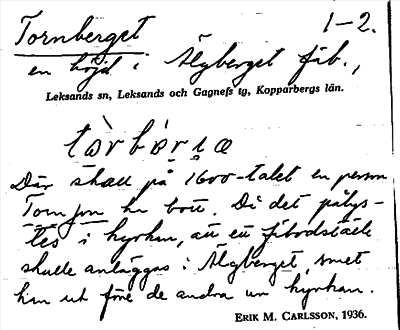 Tornberget 1-2.
en höjd i Älgberget fäb.,
Leksands sn, Leksands och Gagnefs tg, Kopparbergs län.
Där skall på 1600-talet en person
Torn Jon ha bott. Då det pålys-
tes i kyrkan, att en fäbodställe
skulle anläggas i Älgberget, smet
han ut före de andra ur kyrkan.
ERIK M. CARLSSON, 1936.